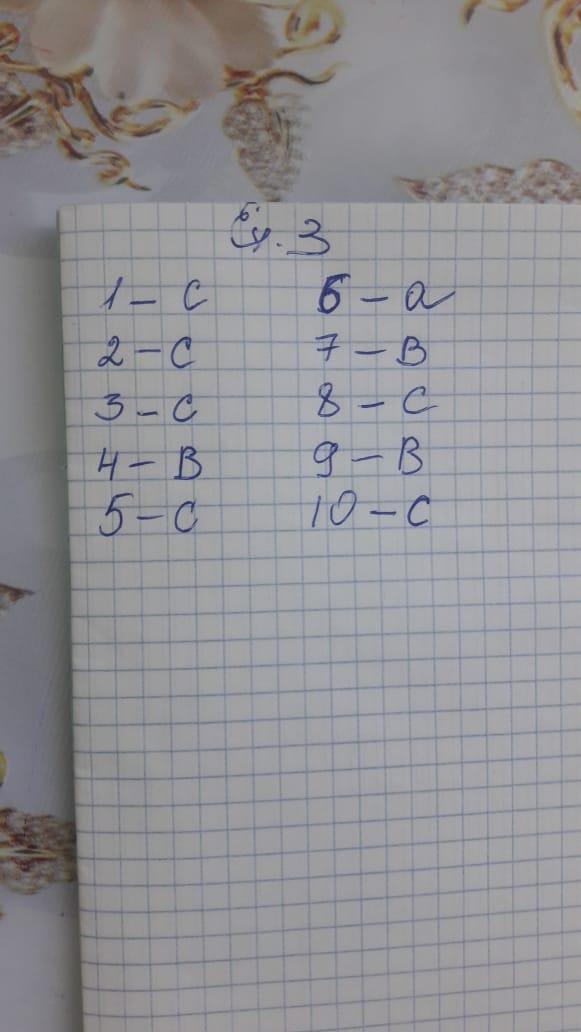 Ex. 3
1 – C
2 – C
3 – C
4 – B
5 – C
6 – a
7 – B
8 – C
9 – B
10 – C